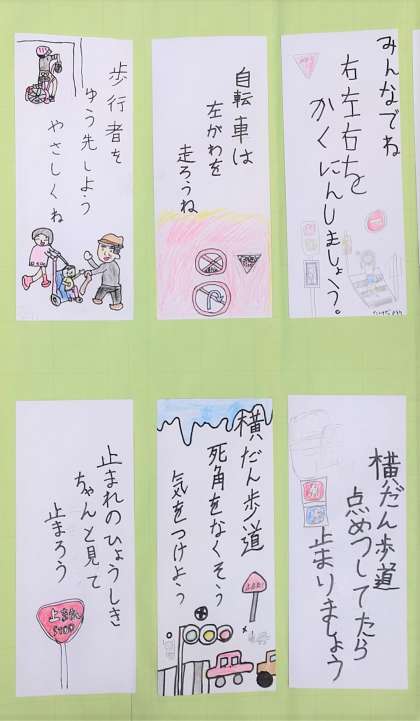 みんなでね
右左右を
かくにんしましょう。
自転車は
左がわを
走ろうね
歩行者を
ゆう先しよう
やさしくね
横だん歩道
点めつしてたら
止まりましょう
横だん歩道
死角をなくそう
気をつけよう
止まれ
止まれのひょうしき
ちゃんと見て
止まろう
止まれ
STOP